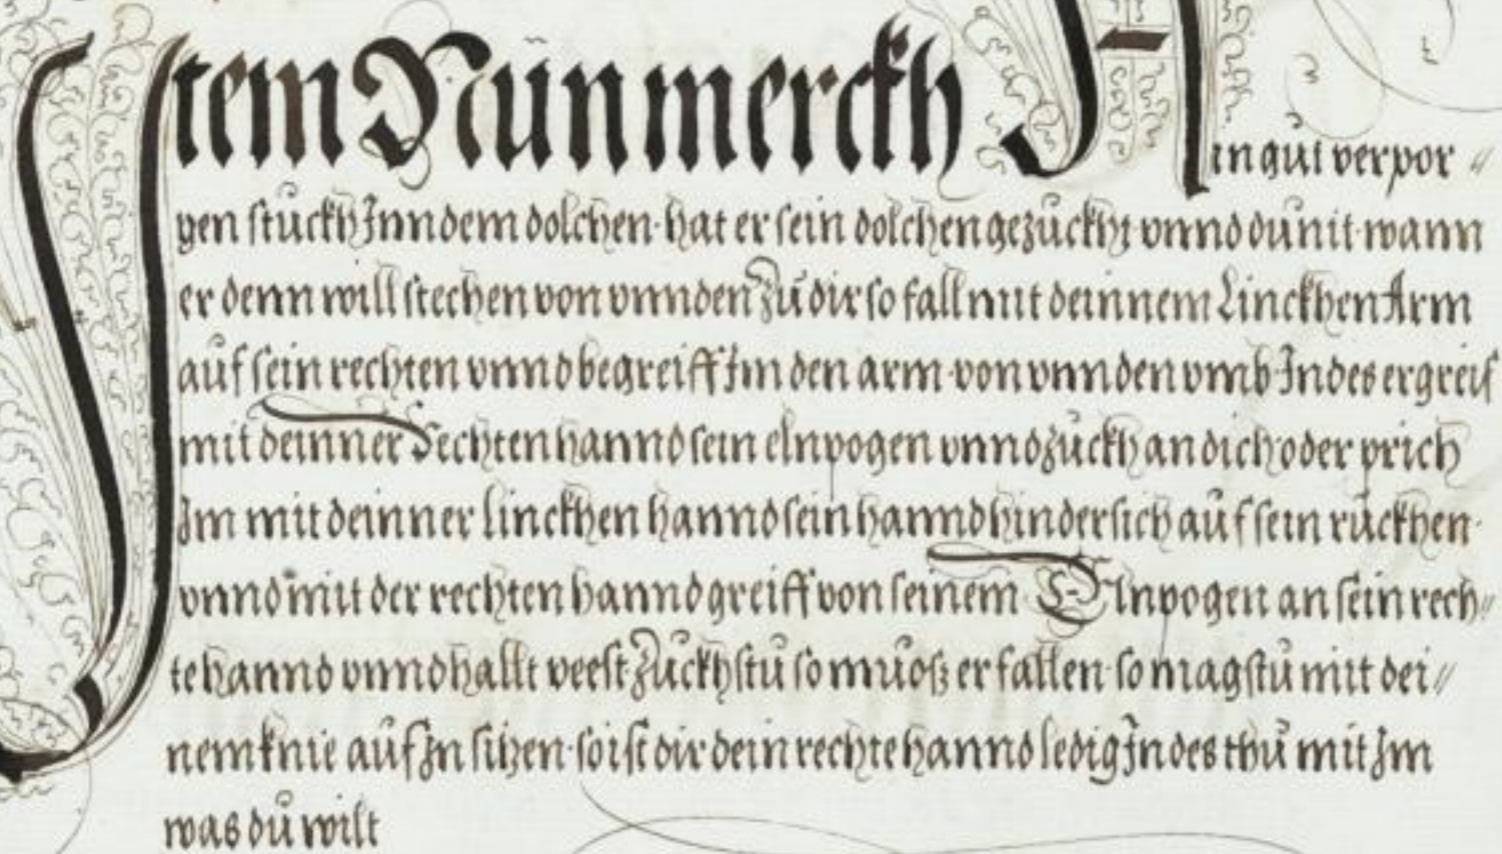 Item Nün merckh Ain gůt verpor⸗
gen stuckh Inn dem dolchen · hat er sein dolchen gezuckht vnnd dü nit · wann
er denn will stechen von vnnden Zů dir so fall mit deinnem Linckhen Arm
auf sein rechten vnnd begreiff Im den arm · von vnnden vmb · Indes ergreif
mit deinner Rechten hannd sein elnpogen vnnd zuckh an dich · oder prich
Im mit deinner linckhen hannd sein hannd hindersich auf sein rückhen ·
vnnd mit der rechten hannd greiff von seinem Elnpogen an sein rech⸗
te hannd vnnd hallt veest Zuckhstu so můoß er fallen · so magstu mit dei⸗
nem knie auf In sitzen · so ist dir dein rechte hannd ledig Indes thů mit Im
was dů wilt